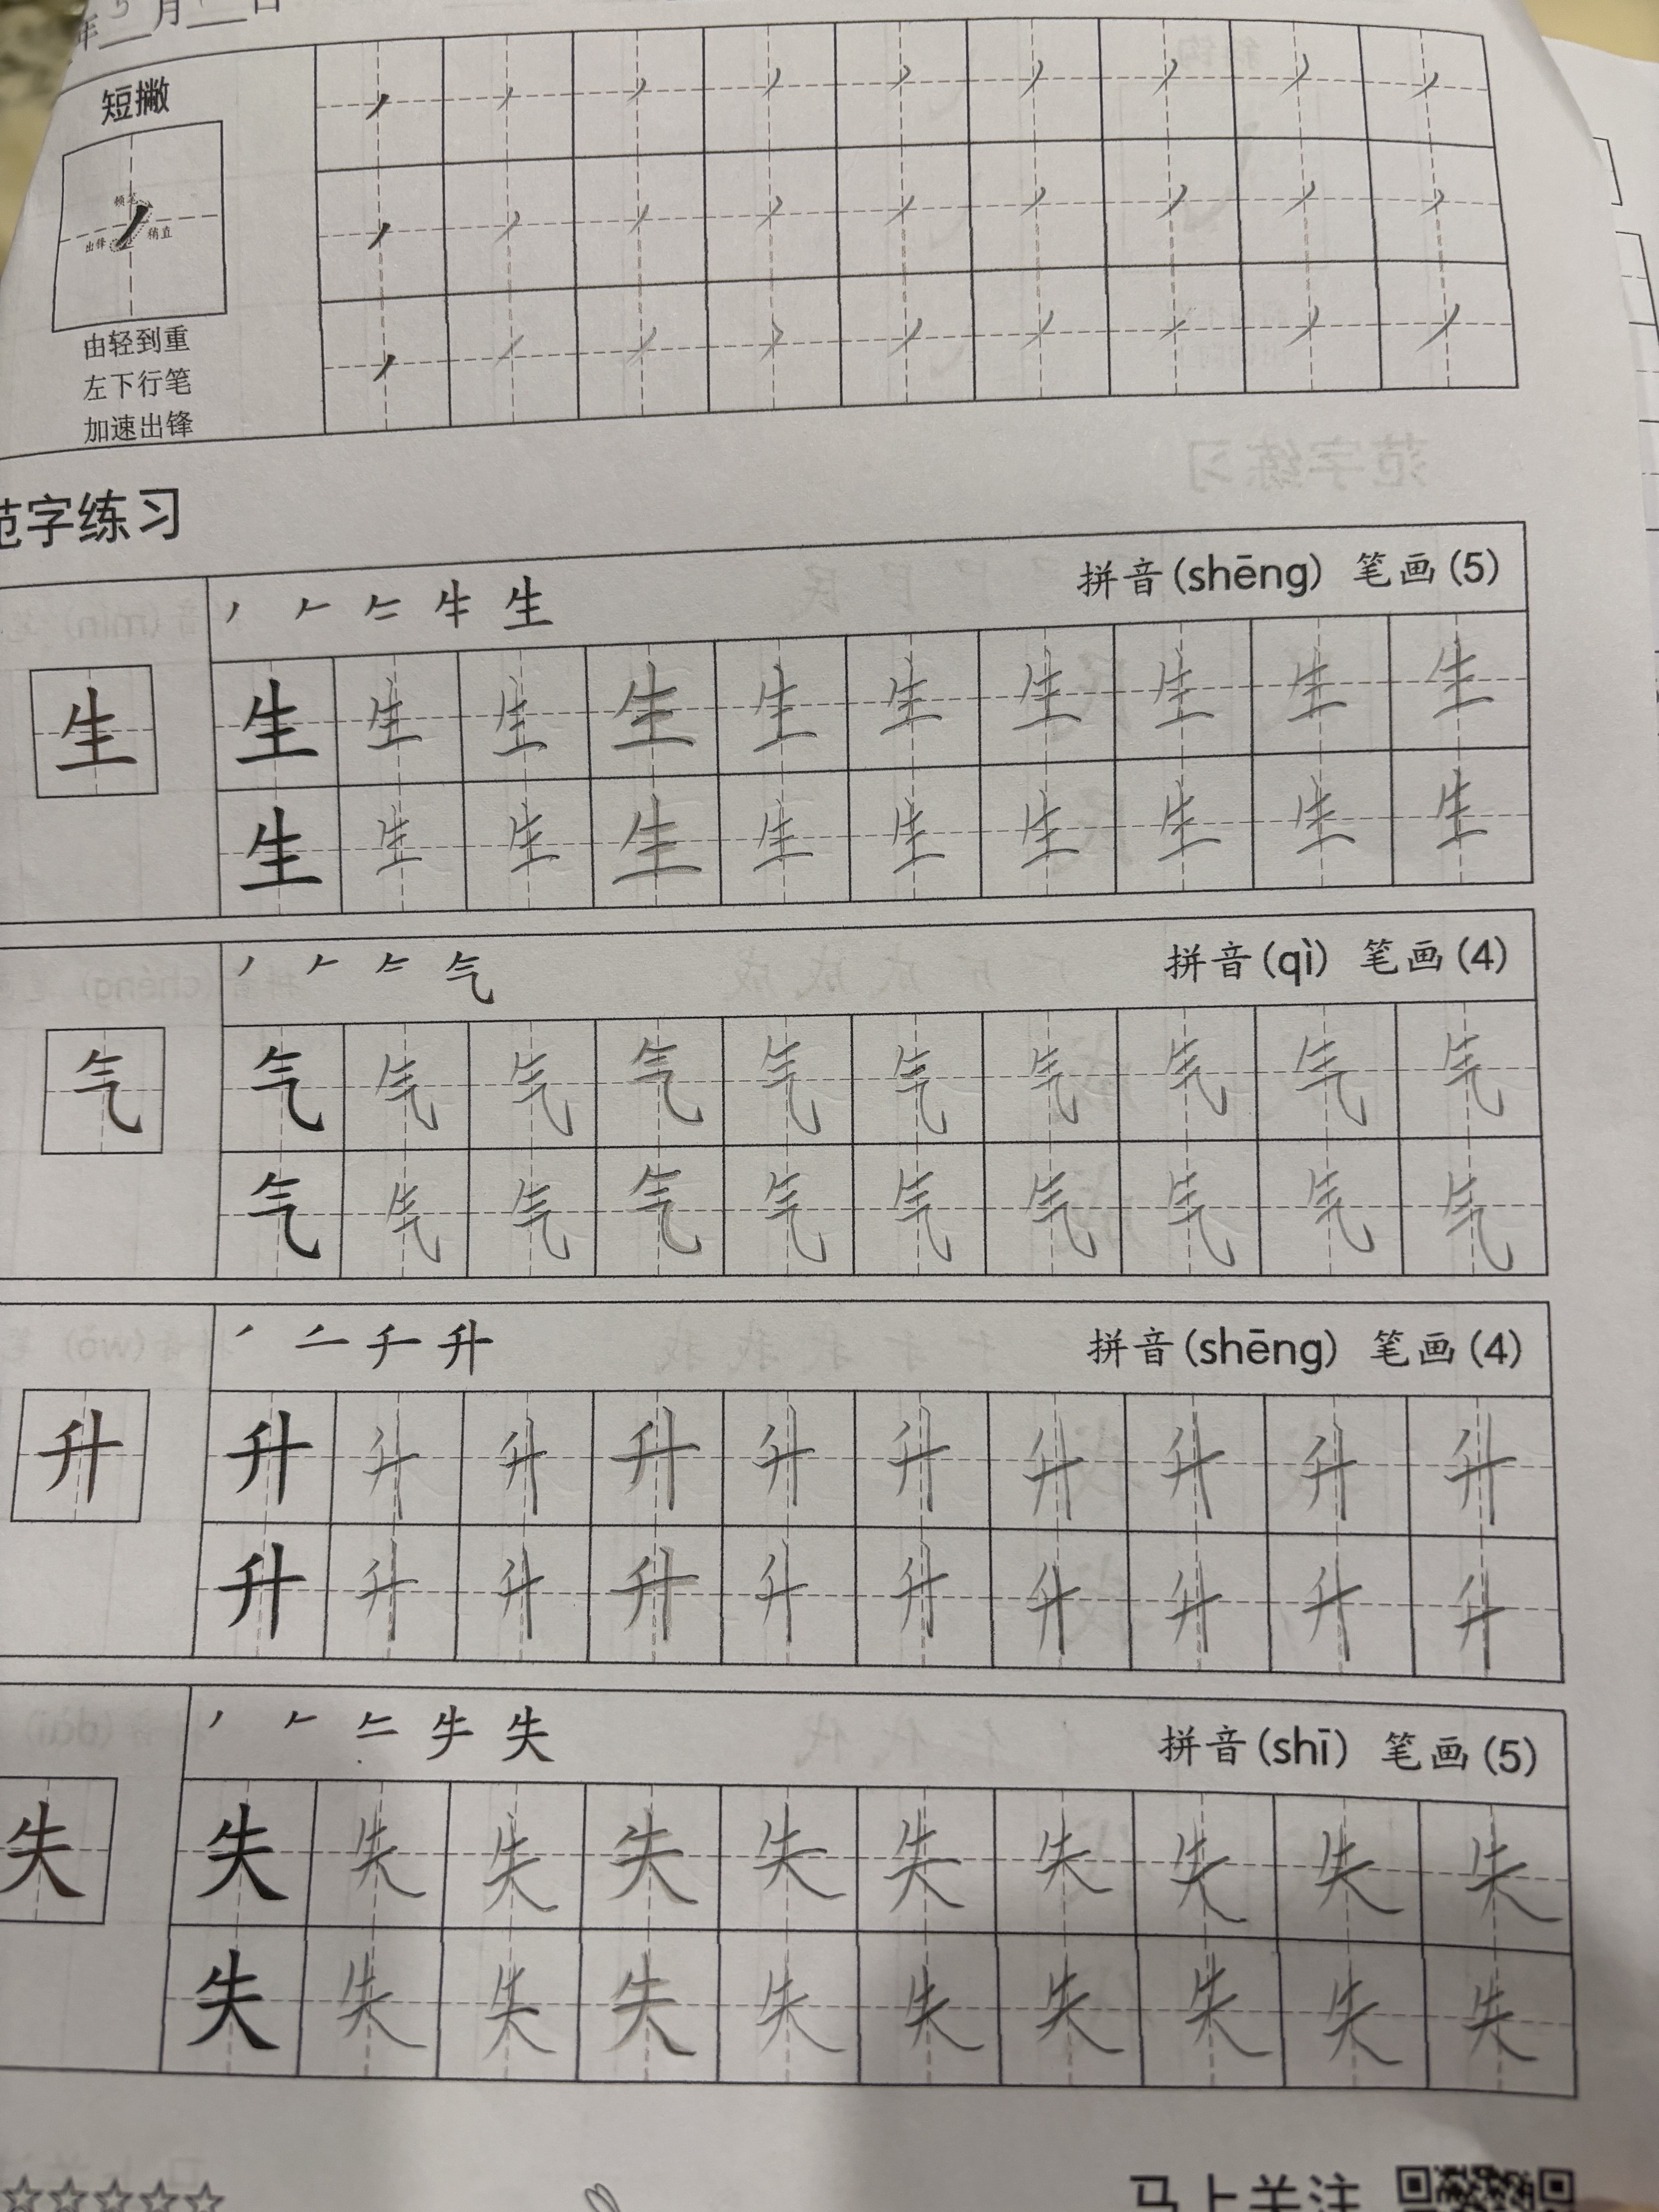 年 5 月 日
短撇
顿笔
出锋 稍直
由轻到重
左下行笔
加速出锋
范字练习
拼音(shēng) 笔画(5)
生
生 生 生 生 生 生 生 生 生 生
生 生 生 生 生 生 生 生 生 生
拼音(qì) 笔画(4)
气
气
气 气 气 气 气 气 气 气 气 气
气 气 气 气 气 气 气 气 气 气
拼音(shēng) 笔画(4)
升
升
升 升 升 升 升 升 升 升 升 升
升 升 升 升 升 升 升 升 升 升
拼音(shī) 笔画(5)
失
失
失 失 失 失 失 失 失 失 失 失
失 失 失 失 失 失 失 失 失 失
马上关注